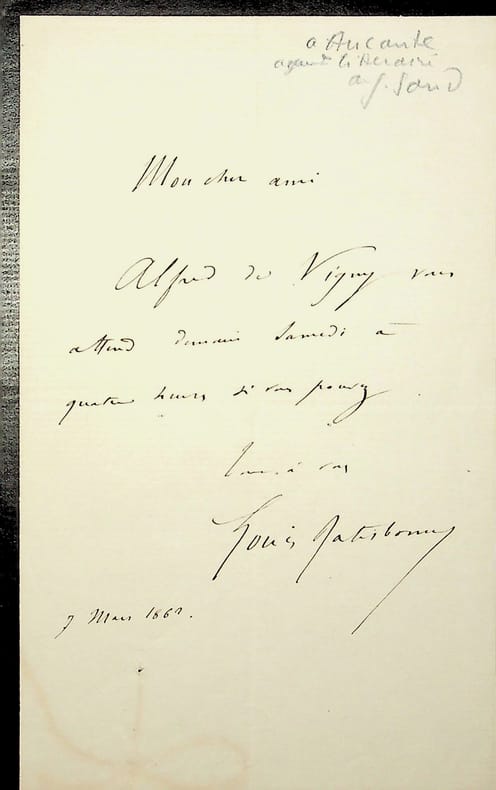 a Aucante
agent litteraire
de G. Sand
Mon cher ami
Alfred de Vigny vous
attend demain Samedi à
quatre heures si vous pouvez
Tout à vous
Louis Ratisbonne
7 Mars 1862.